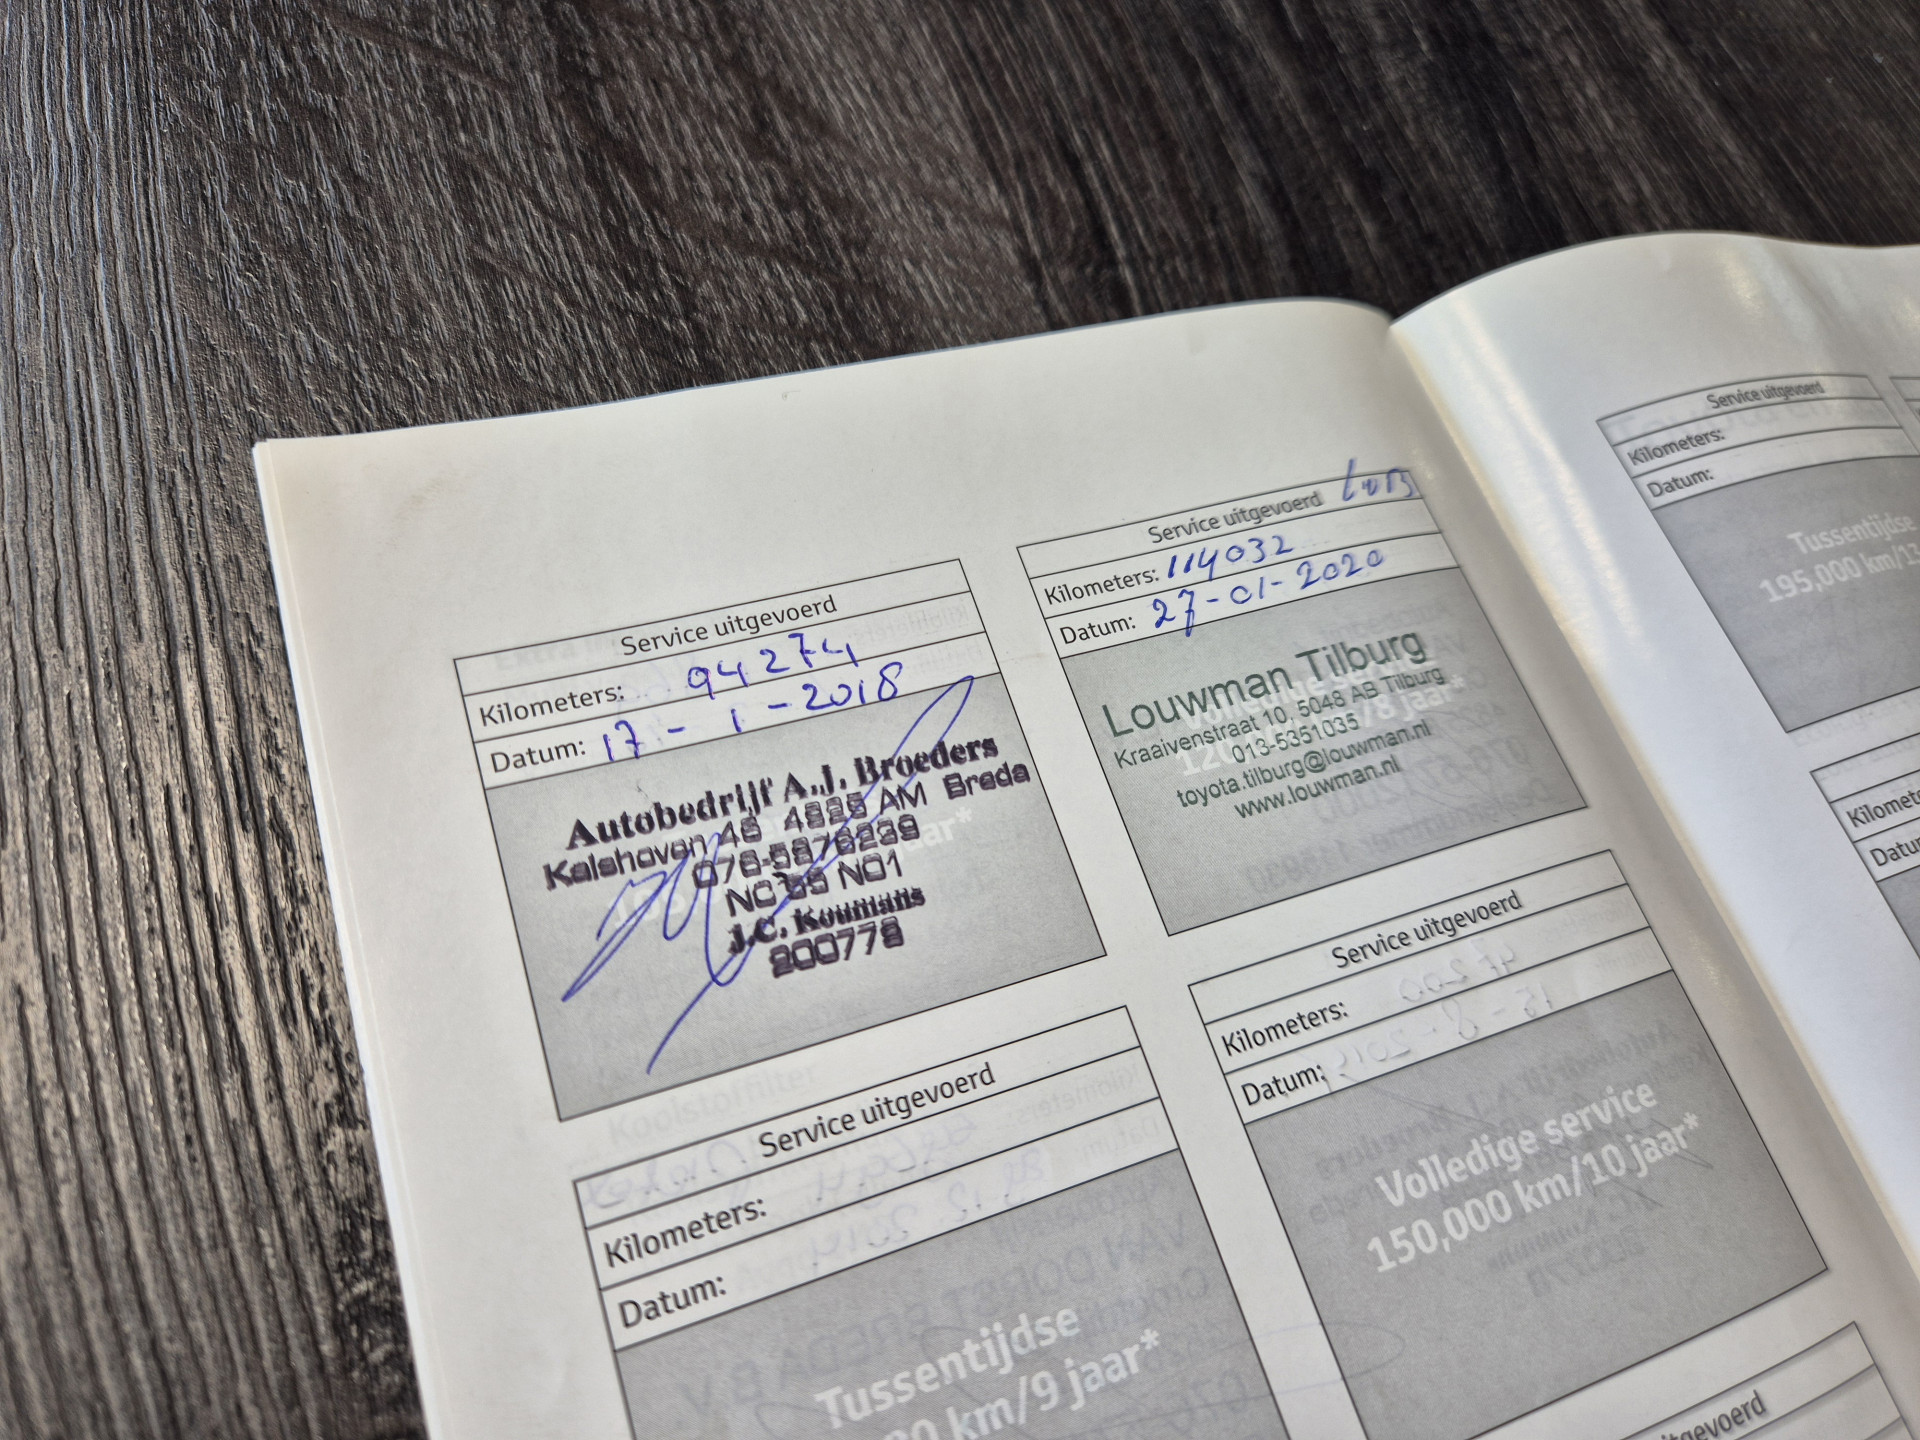 Service uitgevoerd
Kilometers: 94274
Datum: 17 - 1 - 2018
Autobedrijf A.J. Broeders
Kalshoven 46 4825 AM Breda
076-5876239
NC 59 NO1
J.C. Koumans
200778
jaar*
Service uitgevoerd
Kilometers: 114032
Datum: 27-01-2020
Louwman Tilburg
Kraaivenstraat 10, 5048 AB Tilburg
013-5351035
toyota.tilburg@louwman.nl
www.louwman.nl
/8 jaar*
Service uitgevoerd
Kilometers:
Datum:
Tussentijdse
km/9 jaar*
Service uitgevoerd
Kilometers:
Datum:
Volledige service
150,000 km/10 jaar*
Service uitgevoerd
Kilometers:
Datum:
Tussentijdse
195,000 km/13